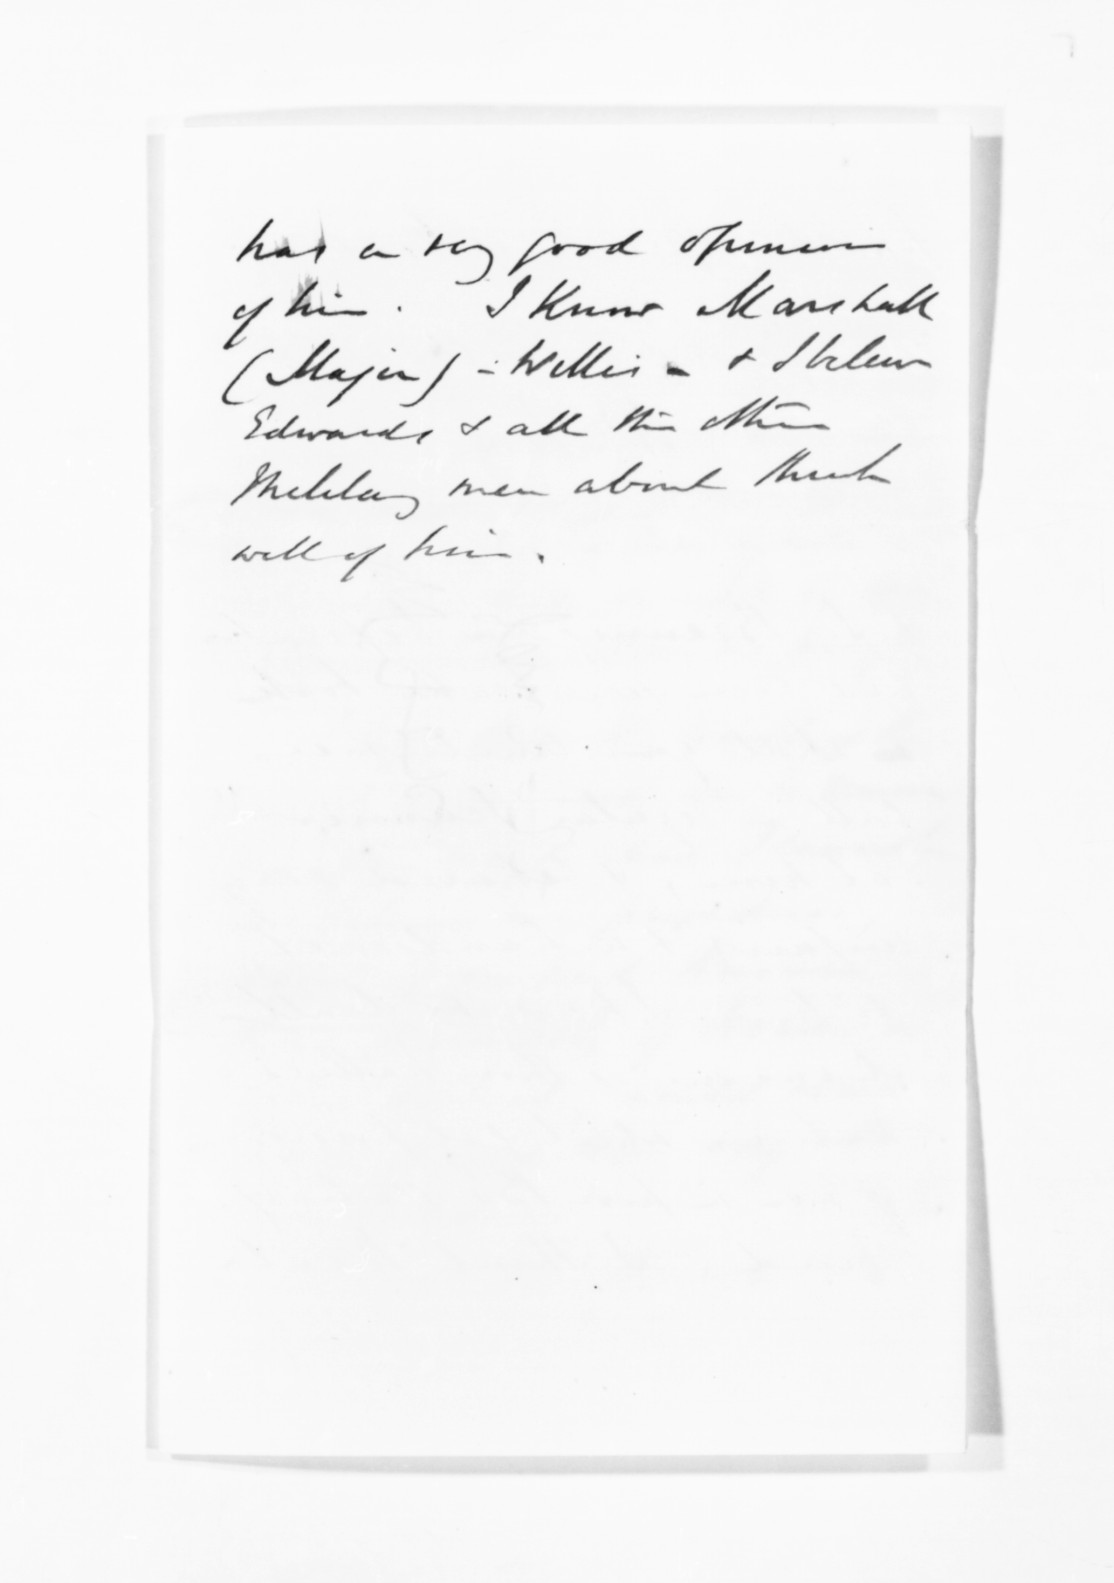 has a very good opinion
of him. I Know Marshall
(Major) - Willis - &
Edwards & all the other
Military men about think
well of him.